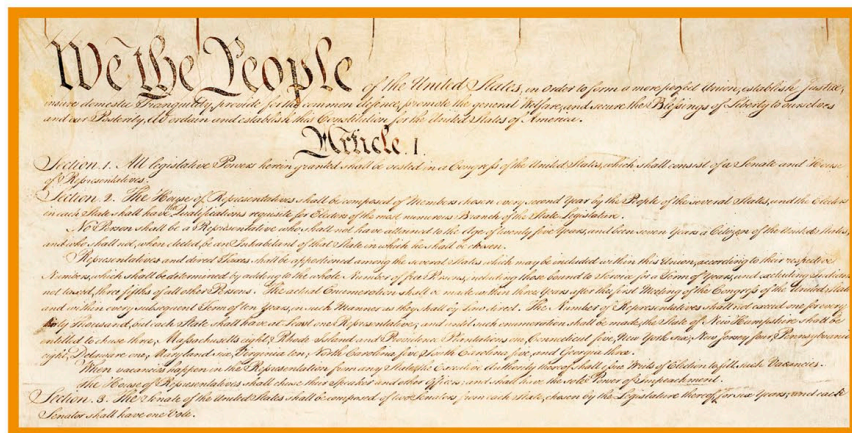 We the People of the United States, in Order to form a more perfect Union, establish Justice,
insure domestic Tranquility, provide for the common defence, promote the general Welfare, and secure the Blessings of Liberty to ourselves
and our Posterity, do ordain and establish this Constitution for the United States of America.
Article. I.
Section. 1. All legislative Powers herein granted shall be vested in a Congress of the United States, which shall consist of a Senate and House
of Representatives.
Section. 2. The House of Representatives shall be composed of Members chosen every second Year by the People of the several States, and the Electors
in each State shall have the Qualifications requisite for Electors of the most numerous Branch of the State Legislature.
No Person shall be a Representative who shall not have attained to the Age of twenty five Years, and been seven Years a Citizen of the United States,
and who shall not, when elected, be an Inhabitant of that State in which he shall be chosen.
Representatives and direct Taxes shall be apportioned among the several States which may be included within this Union, according to their respective
Numbers, which shall be determined by adding to the whole Number of free Persons, including those bound to Service for a Term of Years, and excluding Indians
not taxed, three fifths of all other Persons. The actual Enumeration shall be made within three Years after the first Meeting of the Congress of the United States,
and within every subsequent Term of ten Years, in such Manner as they shall by Law direct. The Number of Representatives shall not exceed one for every
thirty Thousand, but each State shall have at Least one Representative; and until such enumeration shall be made, the State of New Hampshire shall be
entitled to chuse three, Massachusetts eight, Rhode Island and Providence Plantations one, Connecticut five, New York six, New Jersey four, Pennsylvania
eight, Delaware one, Maryland six, Virginia ten, North Carolina five, South Carolina five, and Georgia three.
When vacancies happen in the Representation from any State, the Executive Authority thereof shall issue Writs of Election to fill such Vacancies.
The House of Representatives shall chuse their Speaker and other Officers; and shall have the sole Power of Impeachment.
Section. 3. The Senate of the United States shall be composed of two Senators from each State, chosen by the Legislature thereof, for six Years; and each
Senator shall have one Vote.